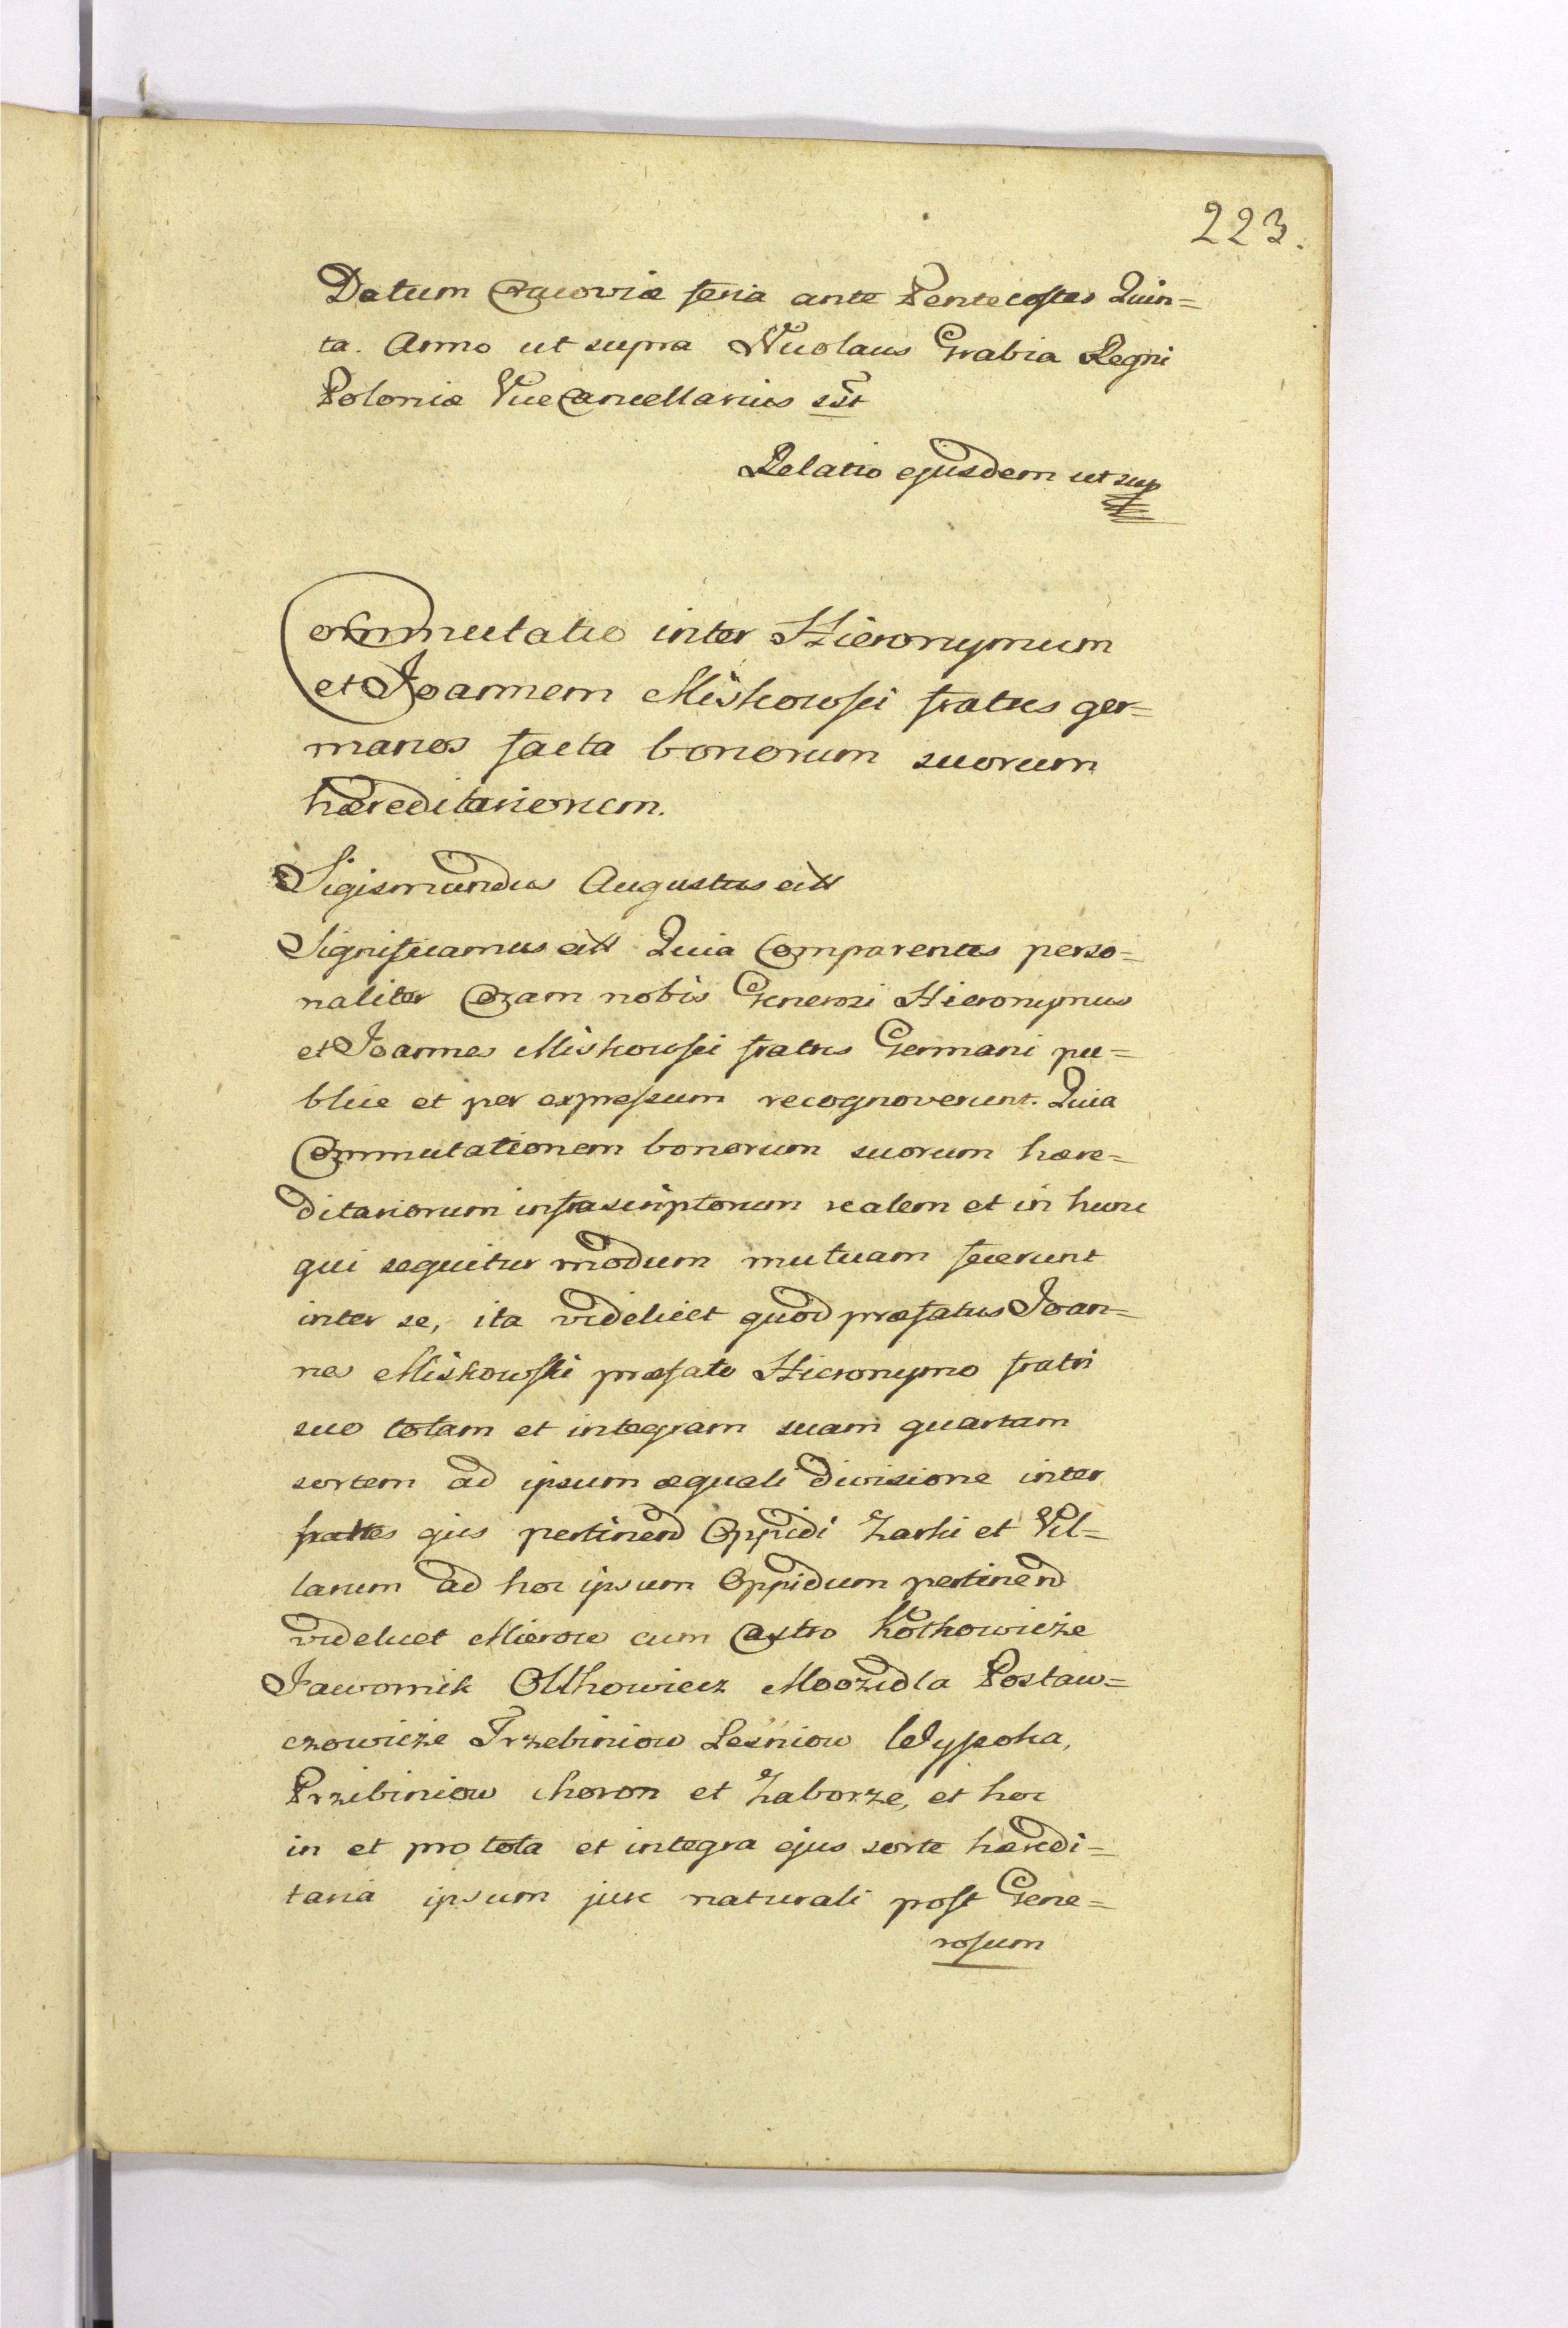 223.
Datum Cracoviæ feria ante Pentecostes Quin=
ta. Anno ut supra Nicolaus Grabia Regni
Poloniæ ViceCancellarius sst
Relatio ejusdem ut sup
Commutatio inter Hieronymum
et Joannem Miskowsci fratres ger=
manos facta bonorum suorum
hæreditariorum.
Sigismundus Augustus ett
Significamus ett Quia Comparentes perso=
naliter Coram nobis Generosi Hieronymus
et Joannes Miskowsci fratres Germani pu=
blice et per expressum recognoverunt. Quia
Commutationem bonorum suorum hære=
ditariorum infrascriptorum realem et in hunc
qui sequitur modum mutuam fecerunt
inter se, ita videlicet quod præfatus Joan=
nes Miskowski præfato Hieronymo fratri
suo totam et integram suam quartam
sortem ad ipsum æquali divisione inter
frattes ejus pertinend Oppidi Zarki et Vil=
larum ad hoc ipsum Oppidum pertinend
videlicet Mierow cum Castro Kothowicze
Jawornik Olthowiecz Moozidla Postaw=
czowicze Trzebiniow Lesniow Wysoka,
Przibiniow choron et Zaborze, et hoc
in et pro tota et integra ejus sorte hæredi=
taria ipsum jure naturali post Gene=
rosum